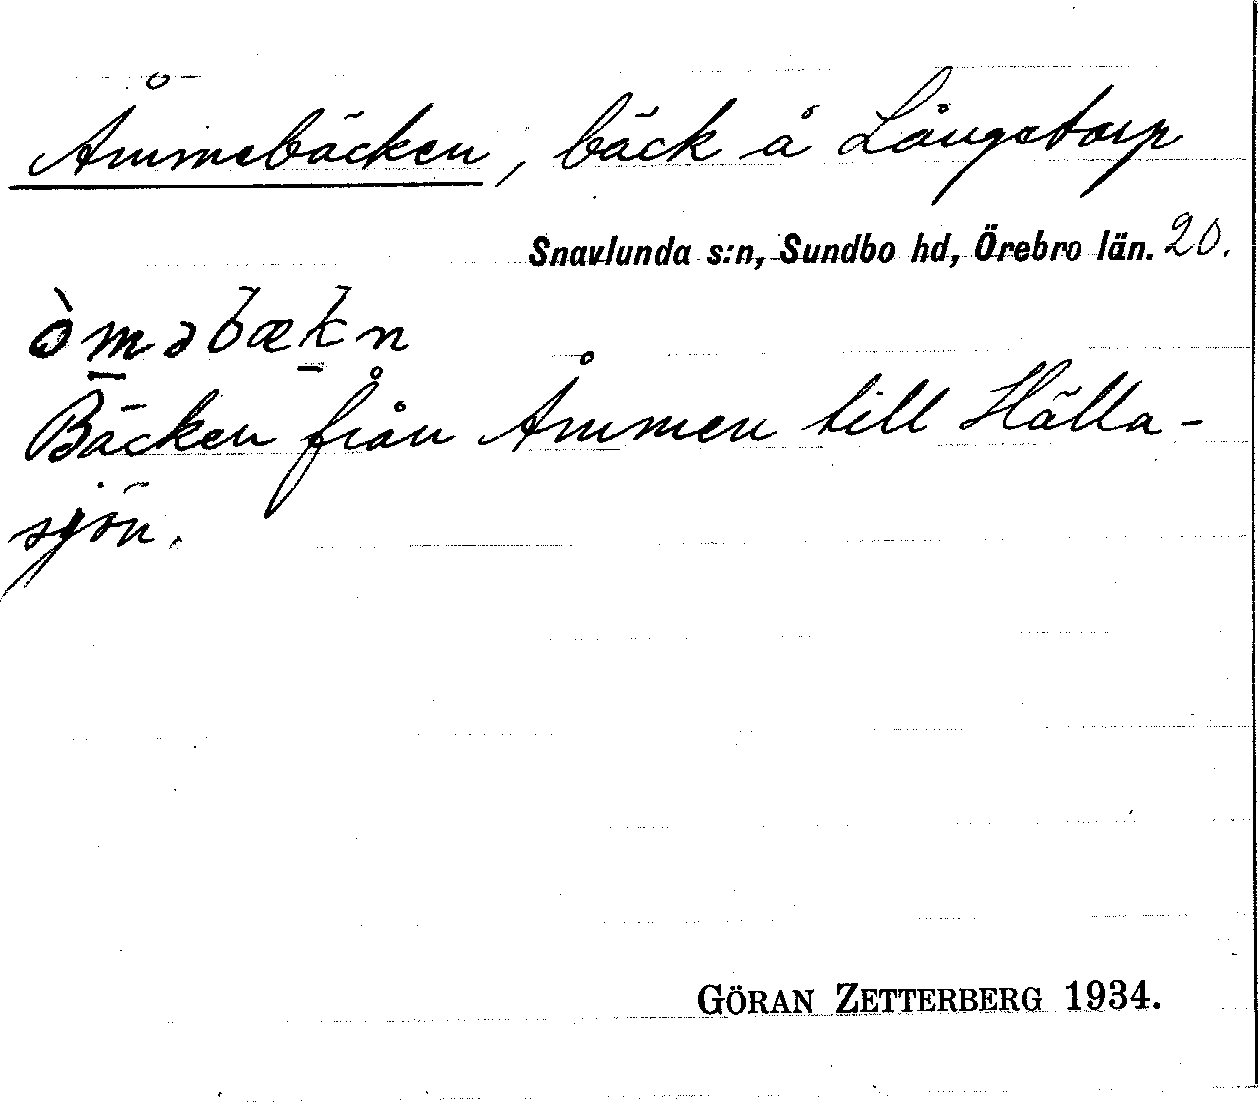 Åmmebäcken, bäck å Långetorp
Snavlunda s:n, Sundbo hd, Örebro län. 20.
òm̲əbæk̲n
Bäcken från Åmmen till Hälla-
sjön.
GÖRAN ZETTERBERG 1934.